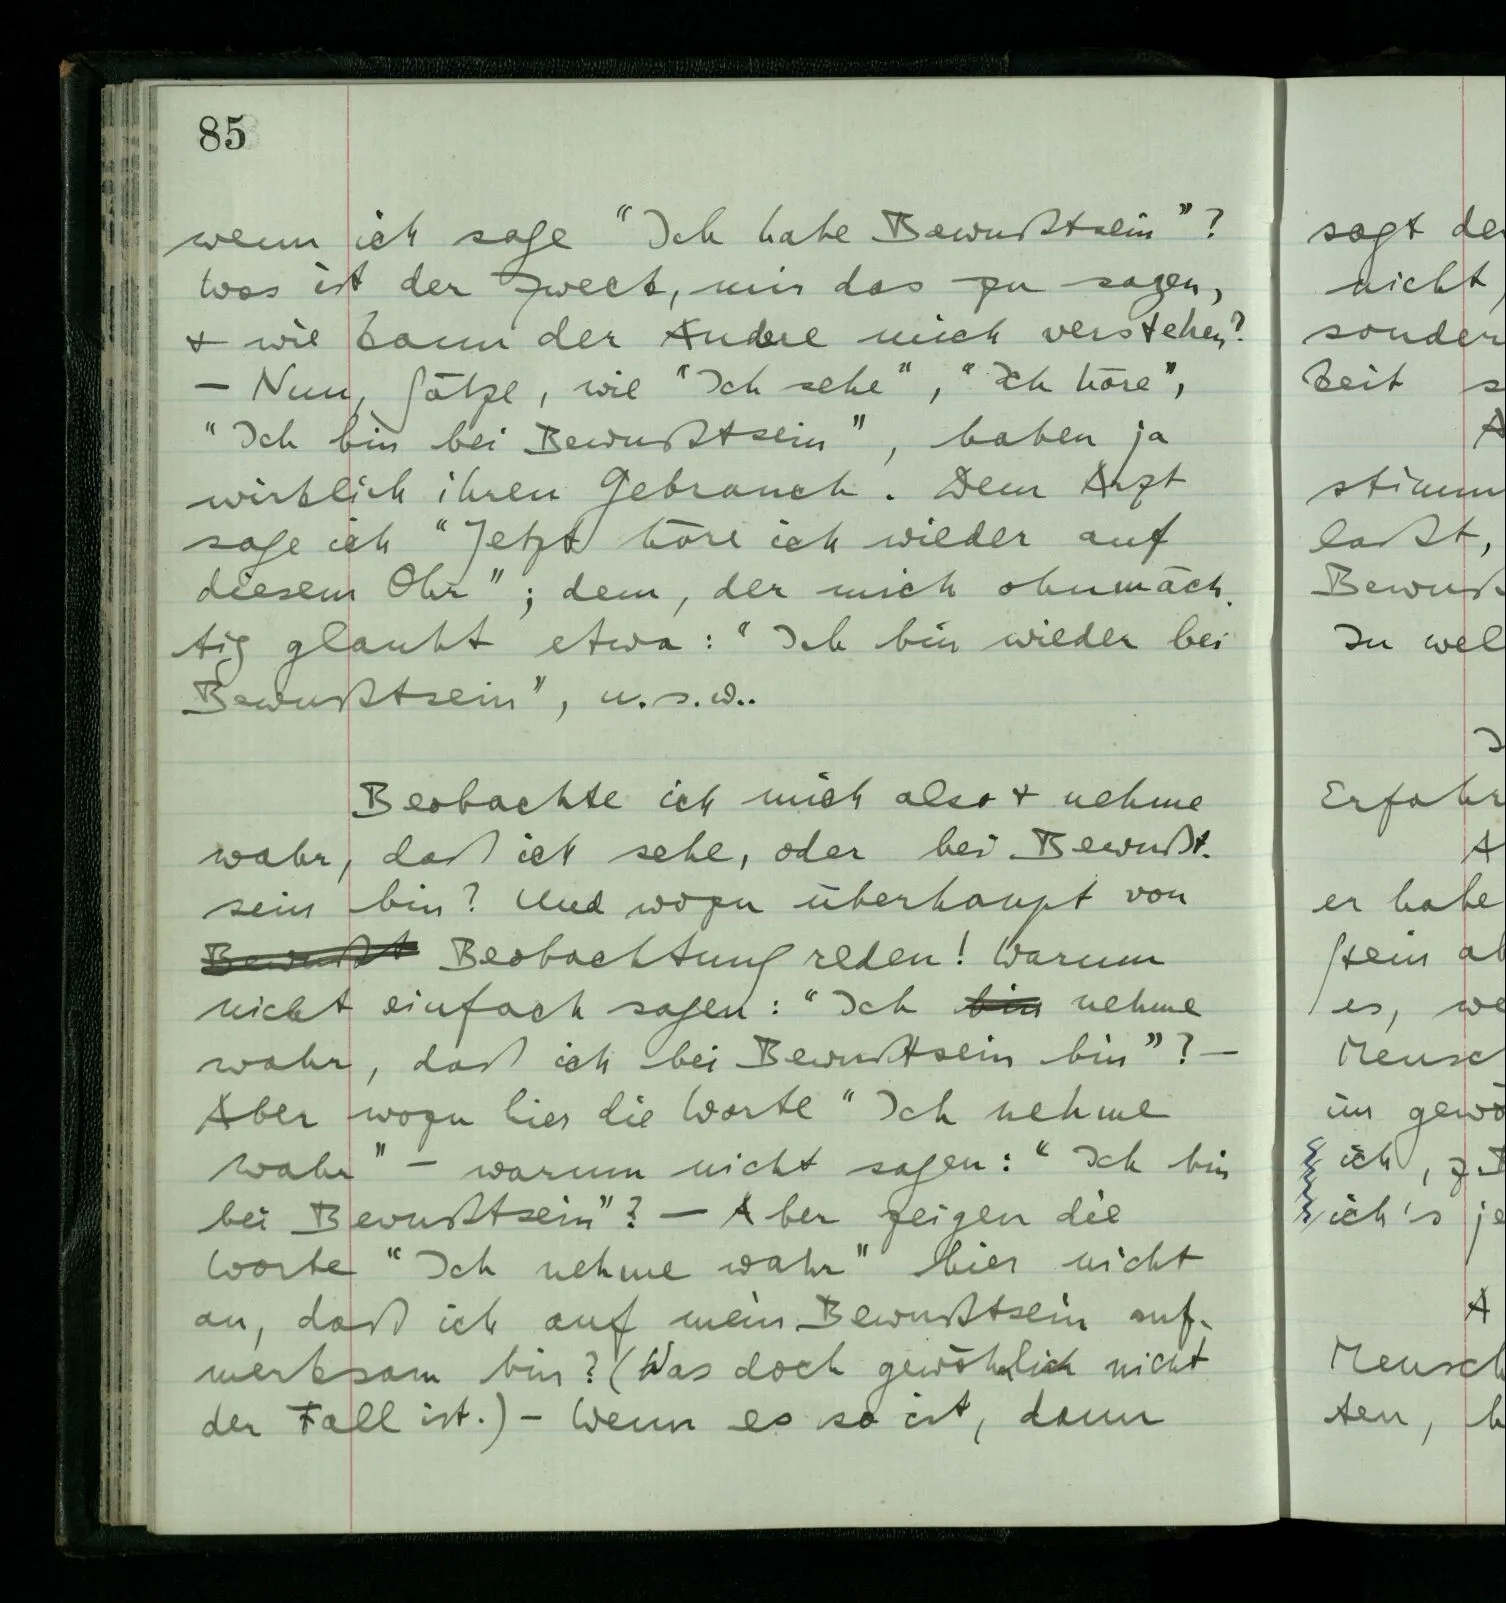 85
wenn ich sage "Ich habe Bewußtsein"?
Was ist der Zweck, mir das zu sagen,
& wie kann der Andere mich verstehen?
– Nun, Sätze, wie "Ich sehe", "Ich höre",
"Ich bin bei Bewußtsein", haben ja
wirklich ihren Gebrauch. Dem Arzt
sage ich "Jetzt höre ich wieder auf
diesem Ohr"; dem, der mich ohnmäch-
tig glaubt etwa: "Ich bin wieder bei
Bewußtsein", u.s.w..
Beobachte ich mich also & nehme
wahr, daß ich sehe, oder bei Bewußt-
sein bin? Und wozu überhaupt von
Bewußt Beobachtung reden! Warum
nicht einfach sagen: "Ich bin nehme
wahr, daß ich bei Bewußtsein bin"? –
Aber wozu hier die Worte "Ich nehme
wahr" – warum nicht sagen: "Ich bin
bei Bewußtsein"? – Aber zeigen die
Worte "Ich nehme wahr" hier nicht
an, daß ich auf mein Bewußtsein auf-
merksam bin? (Was doch gewöhnlich nicht
der Fall ist.) – Wenn es so ist, dann
sagt der
nicht,
sonder
keit s
A
stimm
laßt,
Bewuß
In wel
Erfahr
A
er habe
Stein ab
es, we
Mensc
im gewö
ich, z.B
ich's je
A
Mensch
ten, h